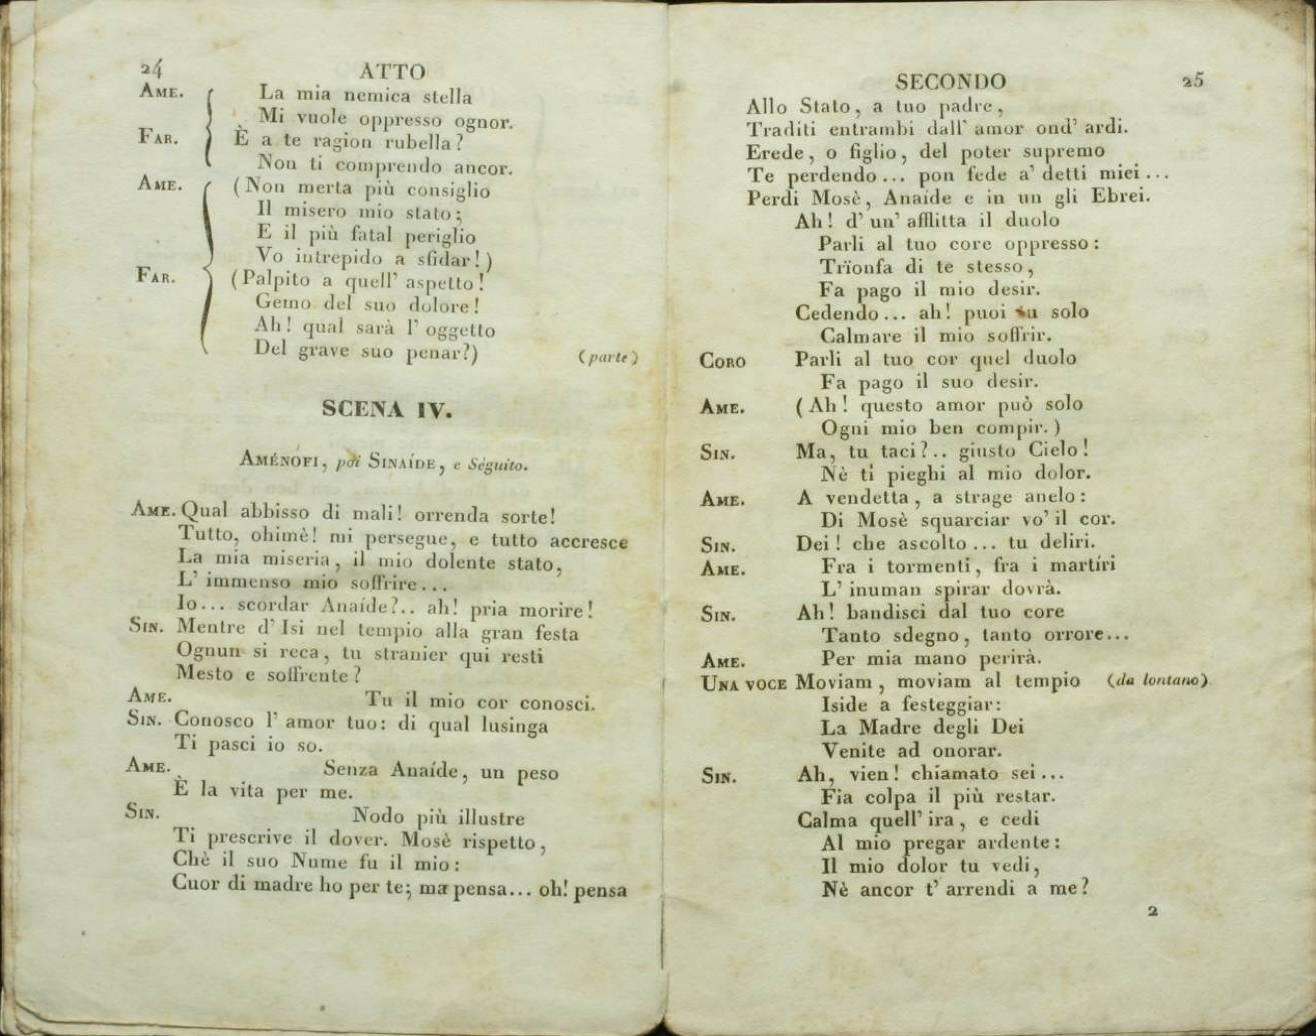 24
ATTO
AME. La mia nemica stella
Mi vuole oppresso ognor.
FAR. È a te ragion rubella?
Non ti comprendo ancor.
AME. (Non merta più consiglio
Il misero mio stato;
E il più fatal periglio
Vo intrepido a sfidar!)
FAR. (Palpito a quell' aspetto!
Gemo del suo dolore!
Ah! qual sarà l' oggetto
Del grave suo penar?) (parte)
SCENA IV.
AMÉNOFI, poi SINAÍDE, e Séguito.
AME. Qual abbisso di mali! orrenda sorte!
Tutto, ohimè! mi persegue, e tutto accresce
La mia miseria, il mio dolente stato,
L' immenso mio soffrire...
Io... scordar Anaíde?.. ah! pria morire!
SIN. Mentre d' Isi nel tempio alla gran festa
Ognun si reca, tu stranier qui resti
Mesto e soffrente?
AME. Tu il mio cor conosci.
SIN. Conosco l' amor tuo: di qual lusinga
Ti pasci io so.
AME. Senza Anaíde, un peso
È la vita per me.
SIN. Nodo più illustre
Ti prescrive il dover. Mosè rispetto,
Chè il suo Nume fu il mio:
Cuor di madre ho per te; ma pensa... oh! pensa
SECONDO
25
Allo Stato, a tuo padre,
Traditi entrambi dall' amor ond' ardi.
Erede, o figlio, del poter supremo
Te perdendo... pon fede a' detti miei...
Perdi Mosè, Anaíde e in un gli Ebrei.
Ah! d' un' afflitta il duolo
Parli al tuo core oppresso:
Trïonfa di te stesso,
Fa pago il mio desir.
Cedendo... ah! puoi tu solo
Calmare il mio soffrir.
CORO Parli al tuo cor quel duolo
Fa pago il suo desir.
AME. (Ah! questo amor può solo
Ogni mio ben compir.)
SIN. Ma, tu taci?.. giusto Cielo!
Nè ti pieghi al mio dolor.
AME. A vendetta, a strage anelo:
Di Mosè squarciar vo' il cor.
SIN. Dei! che ascolto... tu deliri.
AME. Fra i tormenti, fra i martíri
L' inuman spirar dovrà.
SIN. Ah! bandisci dal tuo core
Tanto sdegno, tanto orrore...
AME. Per mia mano perirà.
UNA VOCE Moviam, moviam al tempio (da lontano)
Iside a festeggiar:
La Madre degli Dei
Venite ad onorar.
SIN. Ah, vien! chiamato sei...
Fia colpa il più restar.
Calma quell' ira, e cedi
Al mio pregar ardente:
Il mio dolor tu vedi,
Nè ancor t' arrendi a me?
2